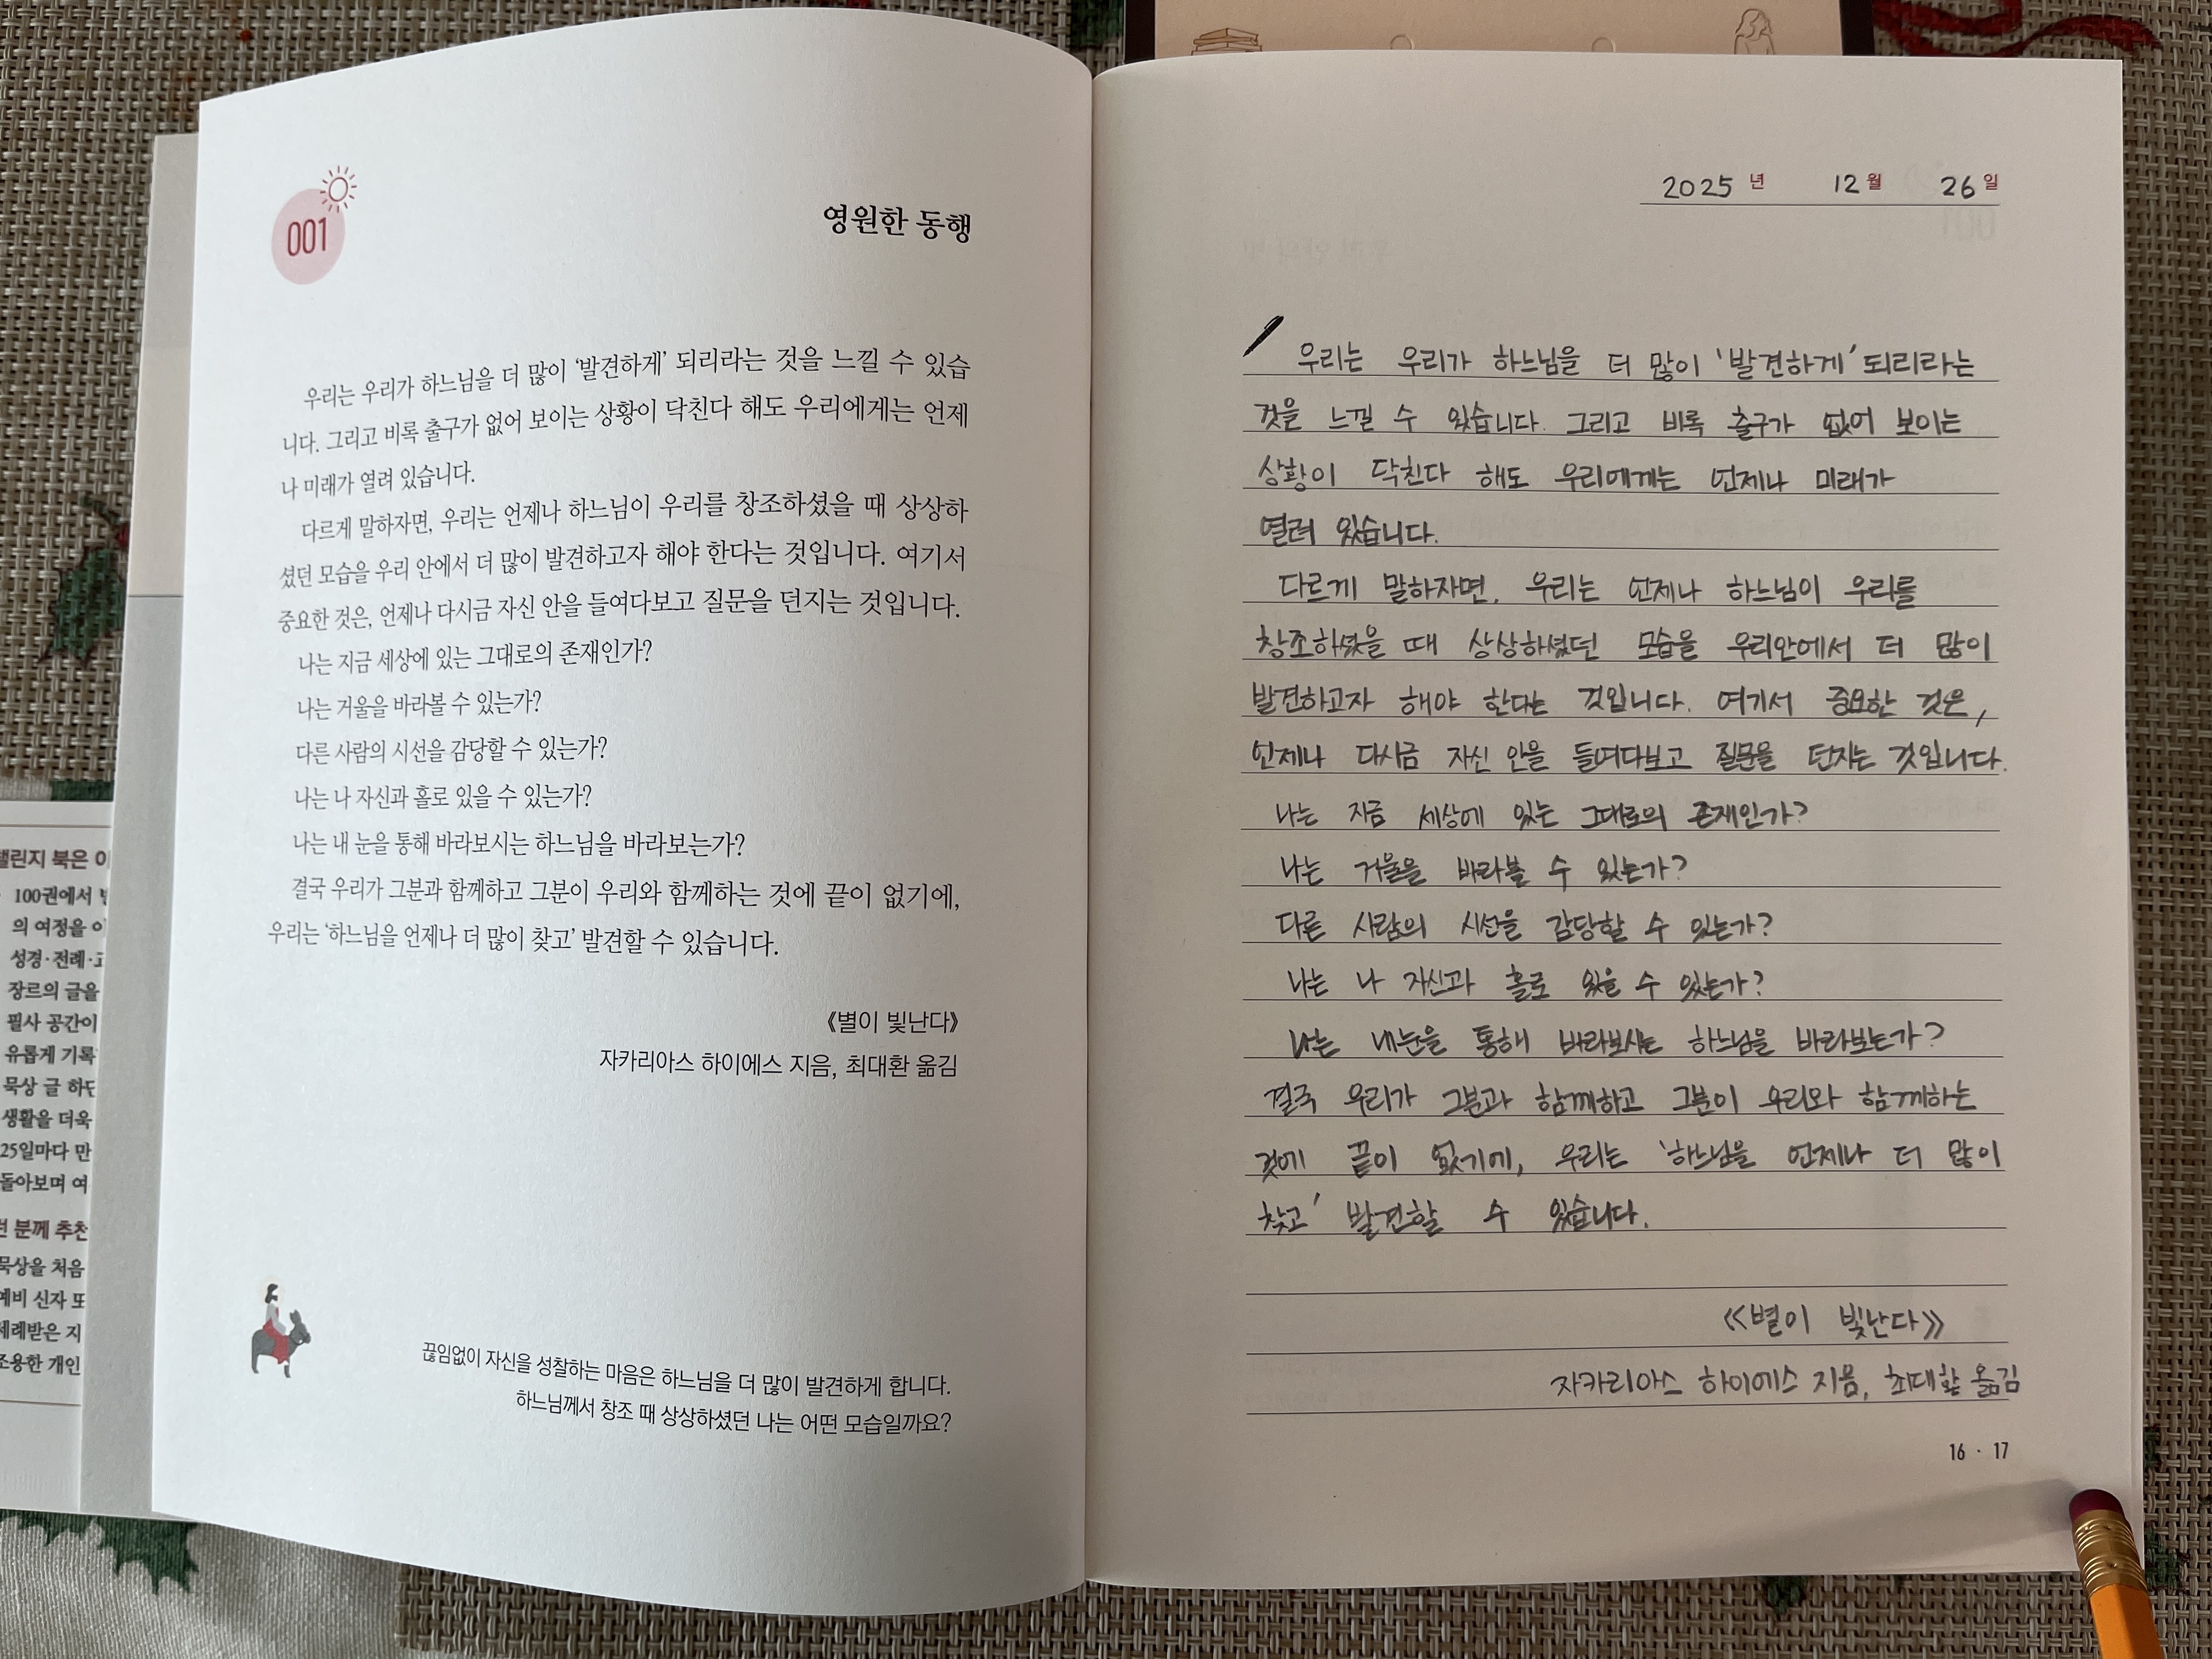 001
영원한 동행
우리는 우리가 하느님을 더 많이 ‘발견하게’ 되리라는 것을 느낄 수 있습
니다. 그리고 비록 출구가 없어 보이는 상황이 닥친다 해도 우리에게는 언제
나 미래가 열려 있습니다.
다르게 말하자면, 우리는 언제나 하느님이 우리를 창조하셨을 때 상상하
셨던 모습을 우리 안에서 더 많이 발견하고자 해야 한다는 것입니다. 여기서
중요한 것은, 언제나 다시금 자신 안을 들여다보고 질문을 던지는 것입니다.
나는 지금 세상에 있는 그대로의 존재인가?
나는 거울을 바라볼 수 있는가?
다른 사람의 시선을 감당할 수 있는가?
나는 나 자신과 홀로 있을 수 있는가?
나는 내 눈을 통해 바라보시는 하느님을 바라보는가?
결국 우리가 그분과 함께하고 그분이 우리와 함께하는 것에 끝이 없기에,
우리는 ‘하느님을 언제나 더 많이 찾고’ 발견할 수 있습니다.
《별이 빛난다》
자카리아스 하이에스 지음, 최대환 옮김
끊임없이 자신을 성찰하는 마음은 하느님을 더 많이 발견하게 합니다.
하느님께서 창조 때 상상하셨던 나는 어떤 모습일까요?
2025 년 12 월 26 일
우리는 우리가 하느님을 더 많이 '발견하게' 되리라는
것을 느낄 수 있습니다. 그리고 비록 출구가 없어 보이는
상황이 닥친다 해도 우리에게는 언제나 미래가
열려 있습니다.
다르게 말하자면, 우리는 언제나 하느님이 우리를
창조하셨을 때 상상하셨던 모습을 우리안에서 더 많이
발견하고자 해야 한다는 것입니다. 여기서 중요한 것은,
언제나 다시금 자신 안을 들여다보고 질문을 던지는 것입니다.
나는 지금 세상에 있는 그대로의 존재인가?
나는 거울을 바라볼 수 있는가?
다른 사람의 시선을 감당할 수 있는가?
나는 나 자신과 홀로 있을 수 있는가?
나는 내눈을 통해 바라보시는 하느님을 바라보는가?
결국 우리가 그분과 함께하고 그분이 우리와 함께하는
것에 끝이 없기에, 우리는 '하느님을 언제나 더 많이
찾고' 발견할 수 있습니다.
《별이 빛난다》
자카리아스 하이에스 지음, 최대환 옮김
16 · 17
챌린지 북은
100권에서
의 여정을
성경·전례·
장르의 글을
필사 공간이
유롭게 기록
묵상 글 하단
생활을 더욱
25일마다 만
돌아보며 여
분께 추천
묵상을 처음
예비 신자 또
세례받은 지
조용한 개인